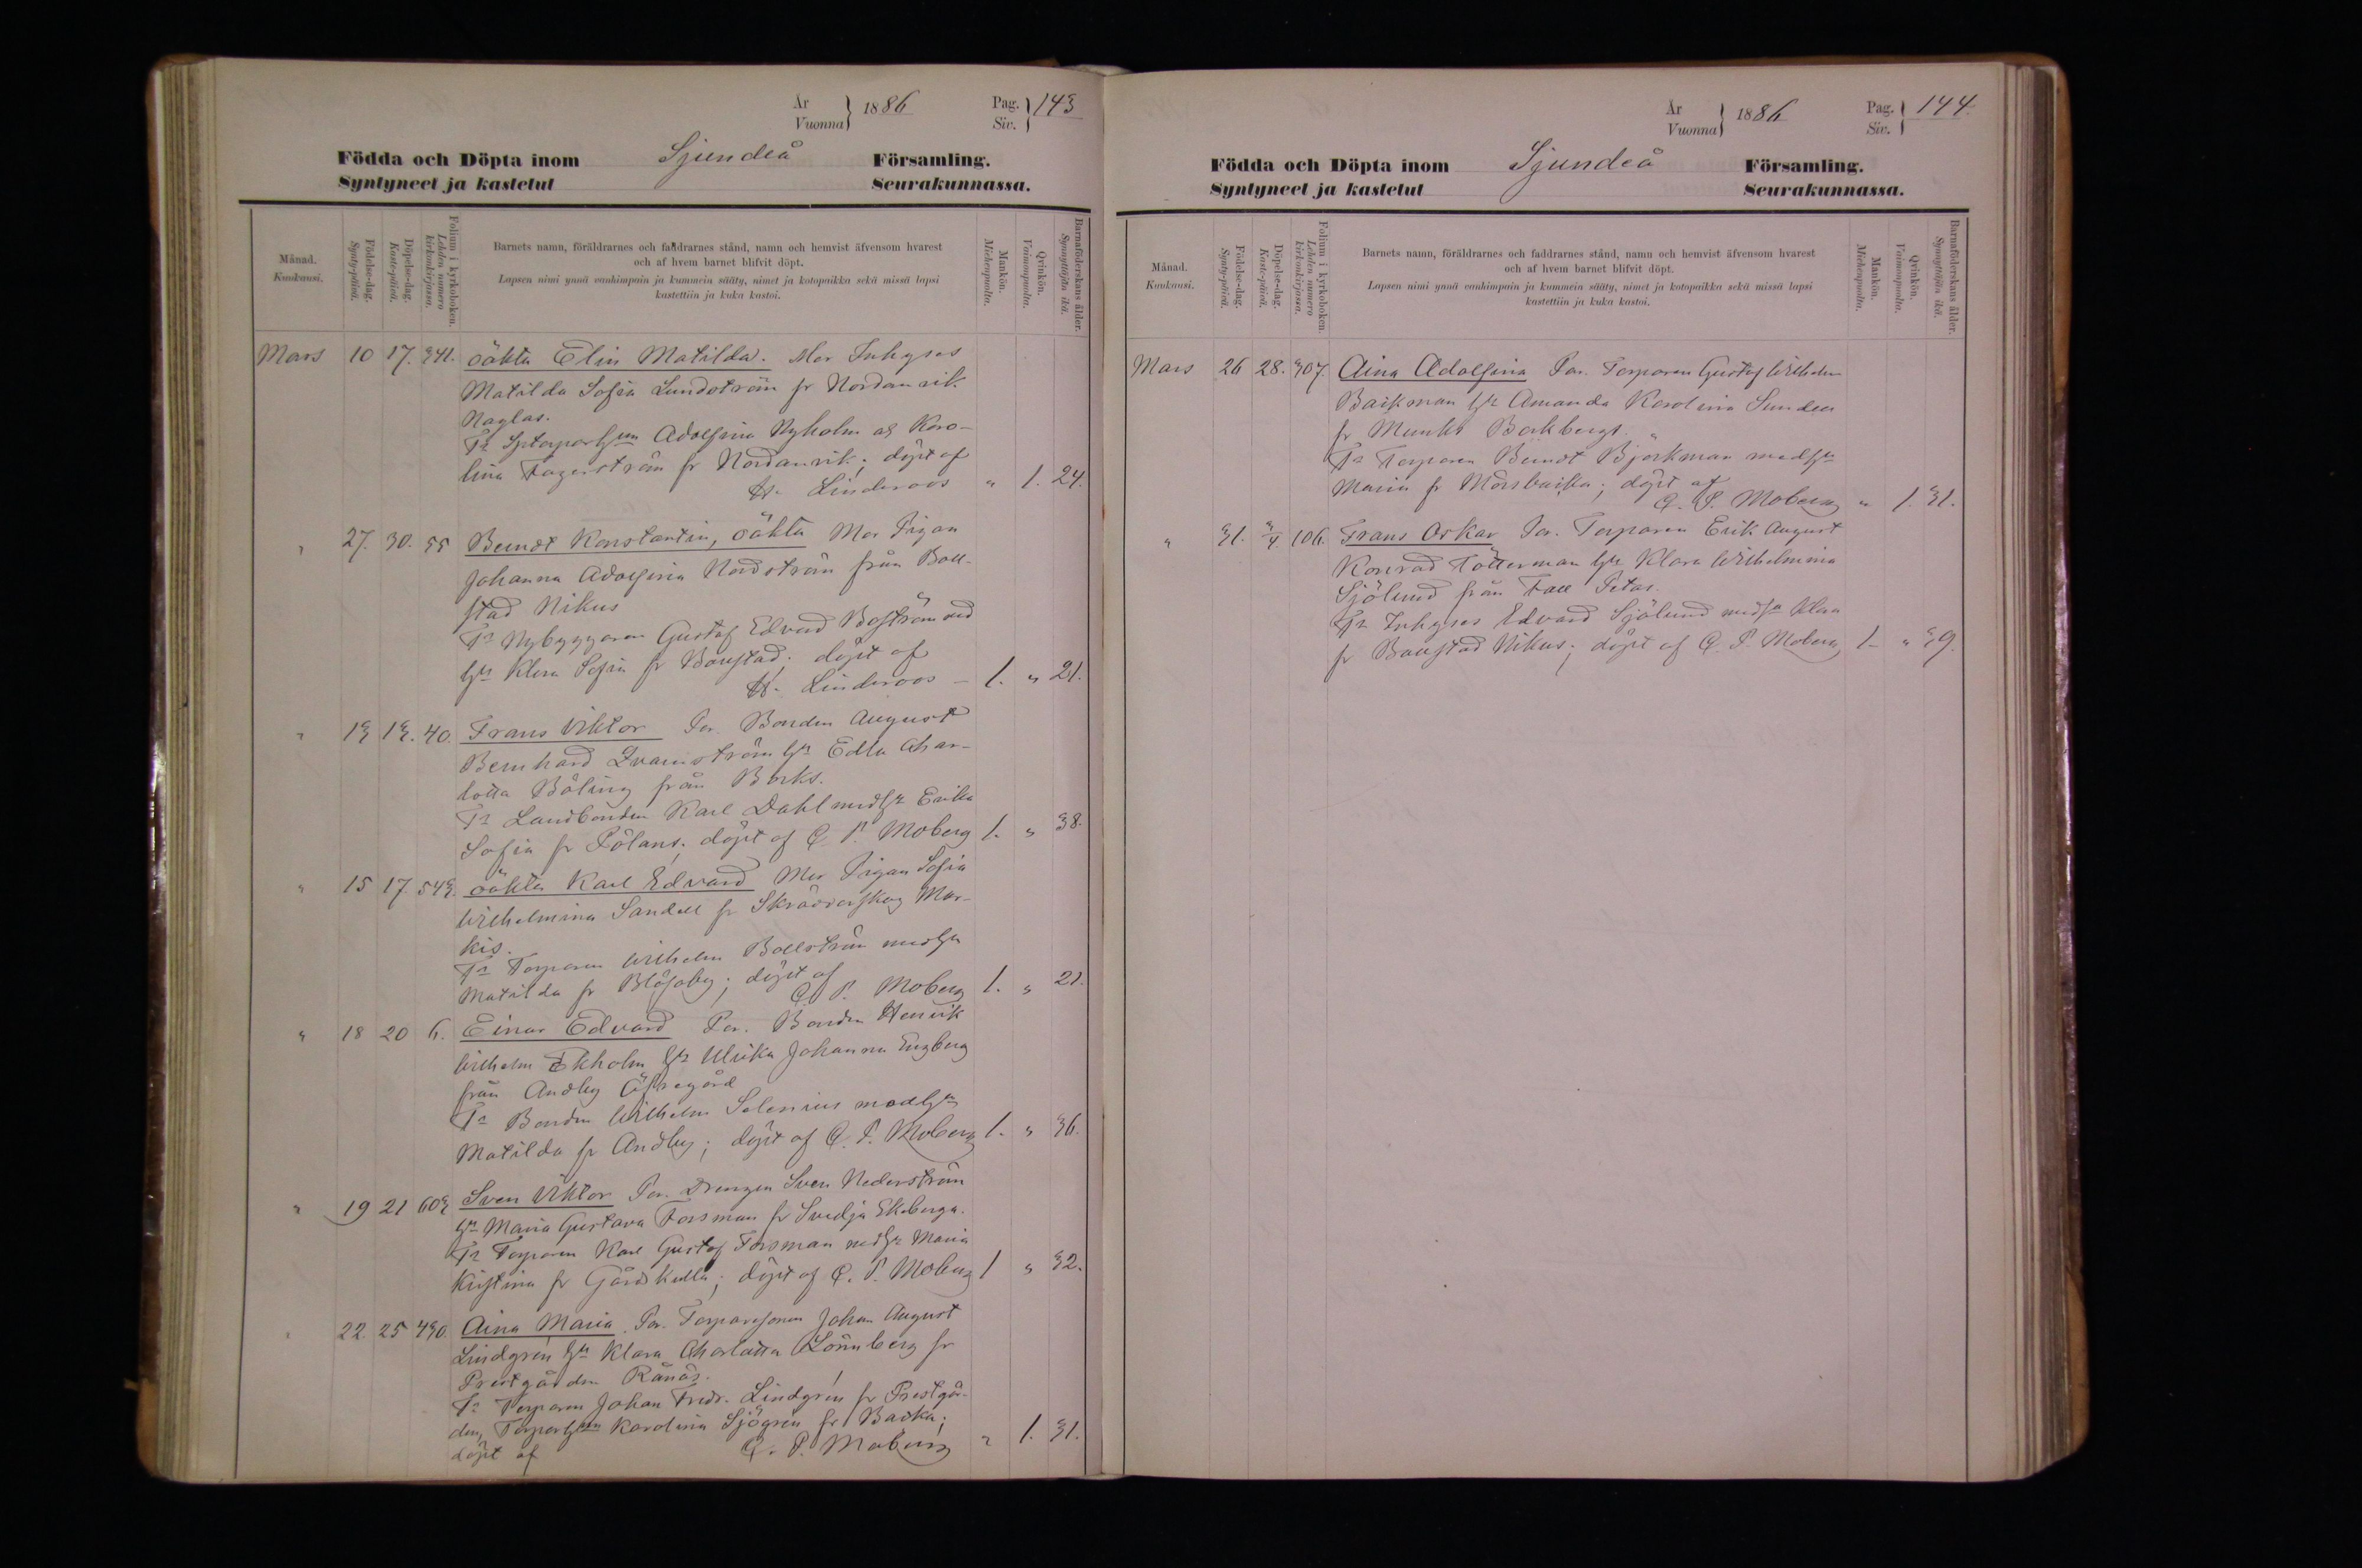 År
Vuonna } 1886 Pag.
Siv. } 143
Födda och Döpta inom Sjundeå Församling.
Syntyneet ja kastetut Seurakunnassa.
Månad.
Kuukausi.
Födelse-dag.
Synty-päivä.
Döpelse-dag.
Kaste-päivä.
Folium i kyrkoboken.
Lehden numero
kirkonkirjassa.
Barnets namn, föräldrarnes och faddrarnes stånd, namn och hemvist äfvensom hvarest
och af hvem barnet blifvit döpt.
Lapsen nimi ynnä vanhimpain ja kummein sääty, nimet ja kotopaikka sekä missä lapsi
kastettiin ja kuka kastoi.
Mankön.
Miehenpuolta.
Qvinkön.
Vaimonpuolta.
Barnaföderskans ålder.
Synnyttäjän ikä.
Mars 10 17. 341. oäkta Elin Matilda. Mor Inhyses
Matilda Sofia Lundström fr Nordanvik
Naglas.
Adolfina Nyholm Karo-
lina Fagerström fr Nordanvik; döpt af
H. Linderoos " 1. 24.
" 27. 30. 55 Berndt Konstantin, oäkta Mor Pigan
Johanna Adolfina Nordström från Boll-
stad Nikus
Fr Nybyggaren Gustaf Edvard Boström med
hu Klara Sofia fr Bollstad; döpt af
H. Linderoos - 1. " 21.
" 13 13. 40. Frans Viktor För. Bonden August
Bernhard Qvarnström hu Edla Char-
lotta Böling från Backs.
Fr Landbonden Karl Dahl med hu Erika
Sofia fr Pölans; döpt af C. P. Moberg 1. " 38.
" 15 17. 543. oäkta Karl Edvard Mor Pigan Sofia
Wilhelmina Sandell fr Skräddarskog Mar-
kis.
Fr Torparen Wilhelm Bollström med hu
Matilda fr Blåfsby; döpt af
C. P. Moberg 1. " 21.
" 18 20 6. Einar Edvard För. Bonden Henrik
Wilhelm Ekholm hu Ulrika Johanna Engberg
från Andby Öfregård
Fr Bonden Wilhelm Selenius med hu
Matilda fr Andby; döpt af C. P. Moberg 1. " 36.
" 19 21 603 Sven Viktor För. Drengen Sven Nederström
hu Maria Gustava Forsman fr Svidja Ekeberga.
Fr Torparen Karl Gustaf Forsman med hu Maria
Kristina fr Gårdskulla; döpt af C. P. Moberg 1 " 32.
" 22. 25 430. Aina Maria. För. Torparesonen Johan August
Lindgren hu Klara Charlotta Lönnberg fr
Prestgården Rånäs.
Fr Torparen Johan Fredr. Lindgren fr Prestgår-
den, Karolina Sjögren fr Backa;
döpt af C. P. Moberg " 1. 31.
År
Vuonna } 1886 Pag.
Siv. } 144.
Födda och Döpta inom Sjundeå Församling.
Syntyneet ja kastetut Seurakunnassa.
Månad.
Kuukausi.
Födelse-dag.
Synty-päivä.
Döpelse-dag.
Kaste-päivä.
Folium i kyrkoboken.
Lehden numero
kirkonkirjassa.
Barnets namn, föräldrarnes och faddrarnes stånd, namn och hemvist äfvensom hvarest
och af hvem barnet blifvit döpt.
Lapsen nimi ynnä vanhimpain ja kummein sääty, nimet ja kotopaikka sekä missä lapsi
kastettiin ja kuka kastoi.
Mankön.
Miehenpuolta.
Qvinkön.
Vaimonpuolta.
Barnaföderskans ålder.
Synnyttäjän ikä.
Mars 26 28. 307. Aina Adolfina För. Torparen Gustaf Wilhelm
Backman hu Amanda Karolina Sundell
fr Munks Backbergs.
Fr Torparen Berndt Björkman med hu
Maria fr Morsbacka; döpt af
C. P. Moberg " 1. 31.
" 31. 4/4. 106. Frans Oskar För. Torparen Erik August
Konrad Tötterman hu Klara Wilhelmina
Sjölund från Fall Petas.
Fr Inhyses Edvard Sjölund med hu Klara
fr Bollstad Nikus; döpt af C. P. Moberg 1. " 39.